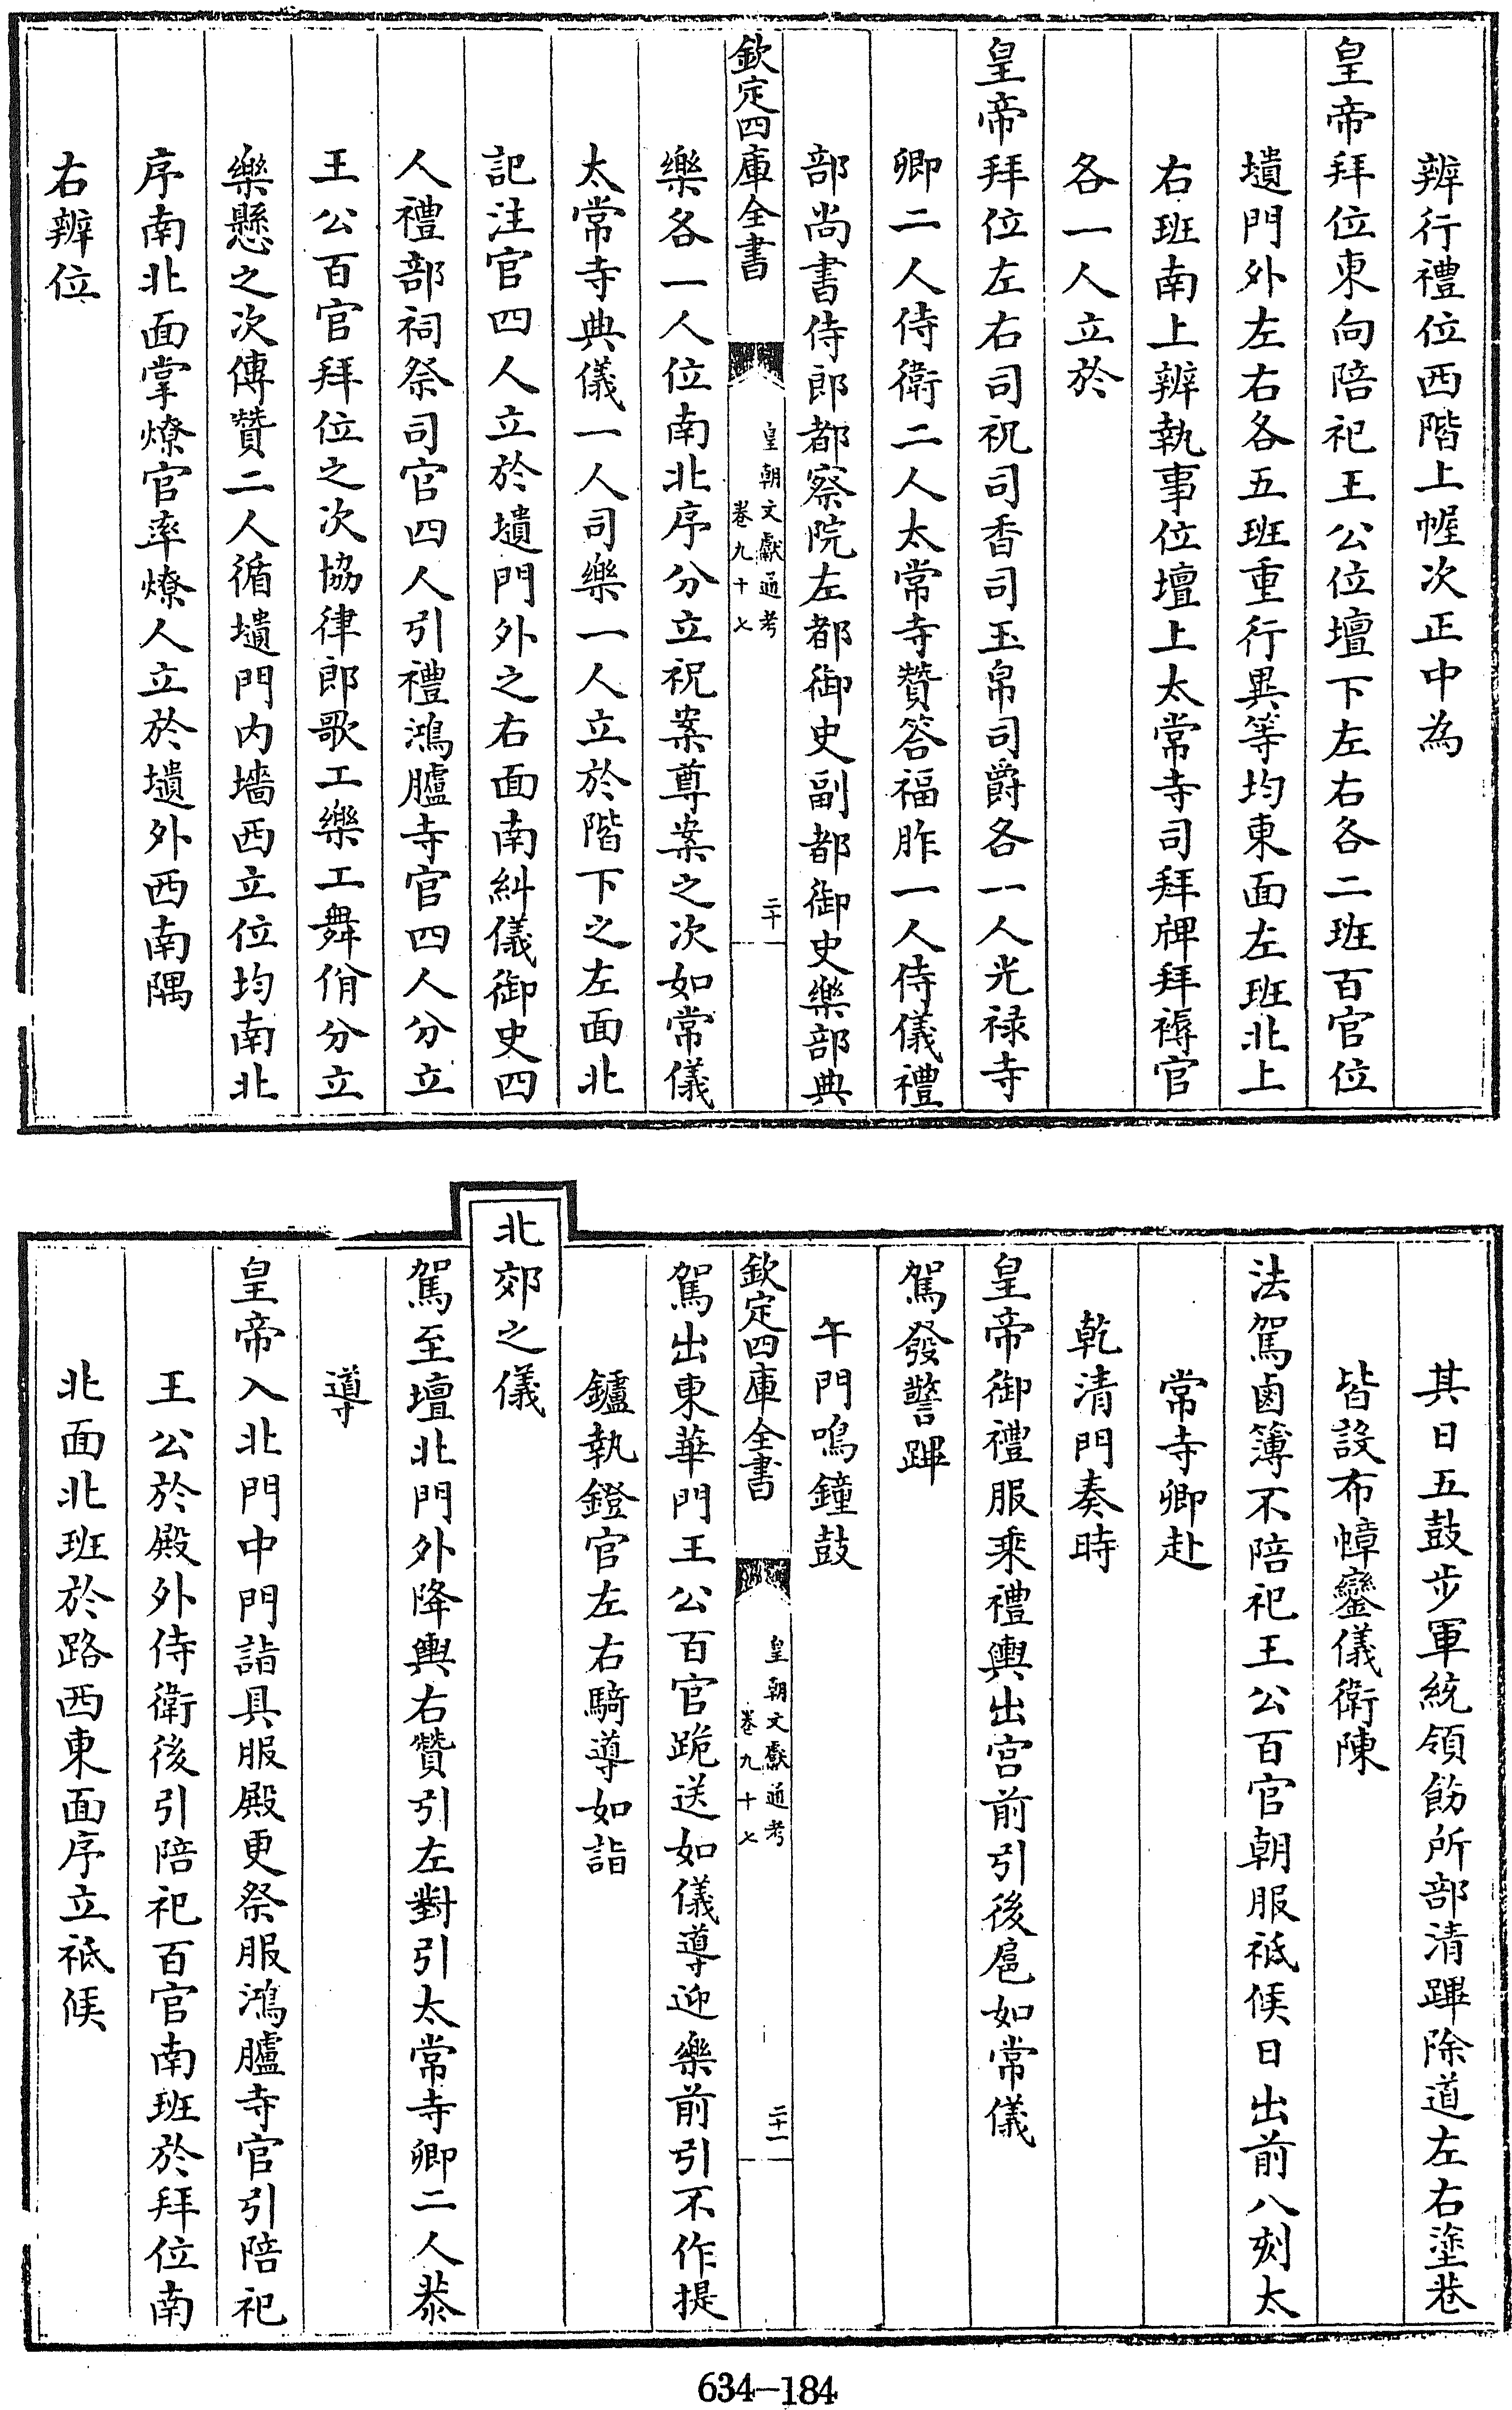 辨行禮位西階上幄次正中為
皇帝拜位東向陪祀王公位壇下左右各二班百官位
壝門外左右各五班重行異等均東面左班北上
右班南上辨執事位壇上太常寺司拜牌拜褥官
各一人立於
皇帝拜位左右司祝司香司玉帛司爵各一人光禄寺
卿二人侍衛二人太常寺贊答福胙一人侍儀禮
部尚書侍郎都察院左都御史副都御史樂部典
欽定四庫全書
皇朝文獻通考
卷九十七
二十
樂各一人位南北序分立祝案尊案之次如常儀
太常寺典儀一人司樂一人立於階下之左面北
記注官四人立於壝門外之右面南糾儀御史四
人禮部祠祭司官四人引禮鴻臚寺官四人分立
王公百官拜位之次協律郎歌工樂工舞佾分立
樂懸之次傳贊二人循壝門内墻西立位均南北
序南北面掌燎官率燎人立於壝外西南隅
右辨位
其日五鼓步軍統領飭所部清蹕除道左右塗巷
皆設布幛鑾儀衛陳
法駕鹵簿不陪祀王公百官朝服祗候日出前八刻太
常寺卿赴
乾清門奏時
皇帝御禮服乘禮輿出宮前引後扈如常儀
駕發警蹕
午門鳴鐘鼓
欽定四庫全書
皇朝文獻通考
卷九十七
二十一
駕出東華門王公百官跪送如儀導迎樂前引不作提
鑪執鐙官左右騎導如詣
北郊之儀
駕至壇北門外降輿右贊引左對引太常寺卿二人㳟
導
皇帝入北門中門詣具服殿更祭服鴻臚寺官引陪祀
王公於殿外侍衛後引陪祀百官南班於拜位南
北面北班於路西東面序立祗候
634-184